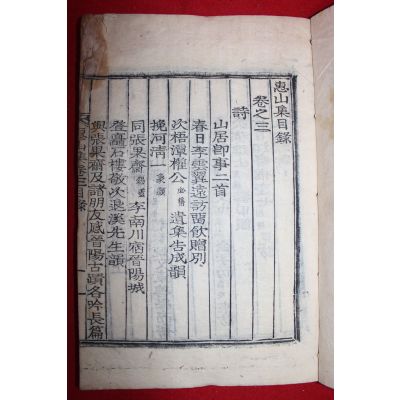 惠山集目錄
卷之三
詩
山居卽事二首
春日李雲翼遠訪留飮贈別
次梧潭權公必偁遺集告成韻
挽河清一
同張果齋錫藎李南川宿晉陽城
登矗石樓敬次退溪先生韻
與張果齋及諸朋友感晉陽古蹟各吟長篇
惠山集卷三目錄